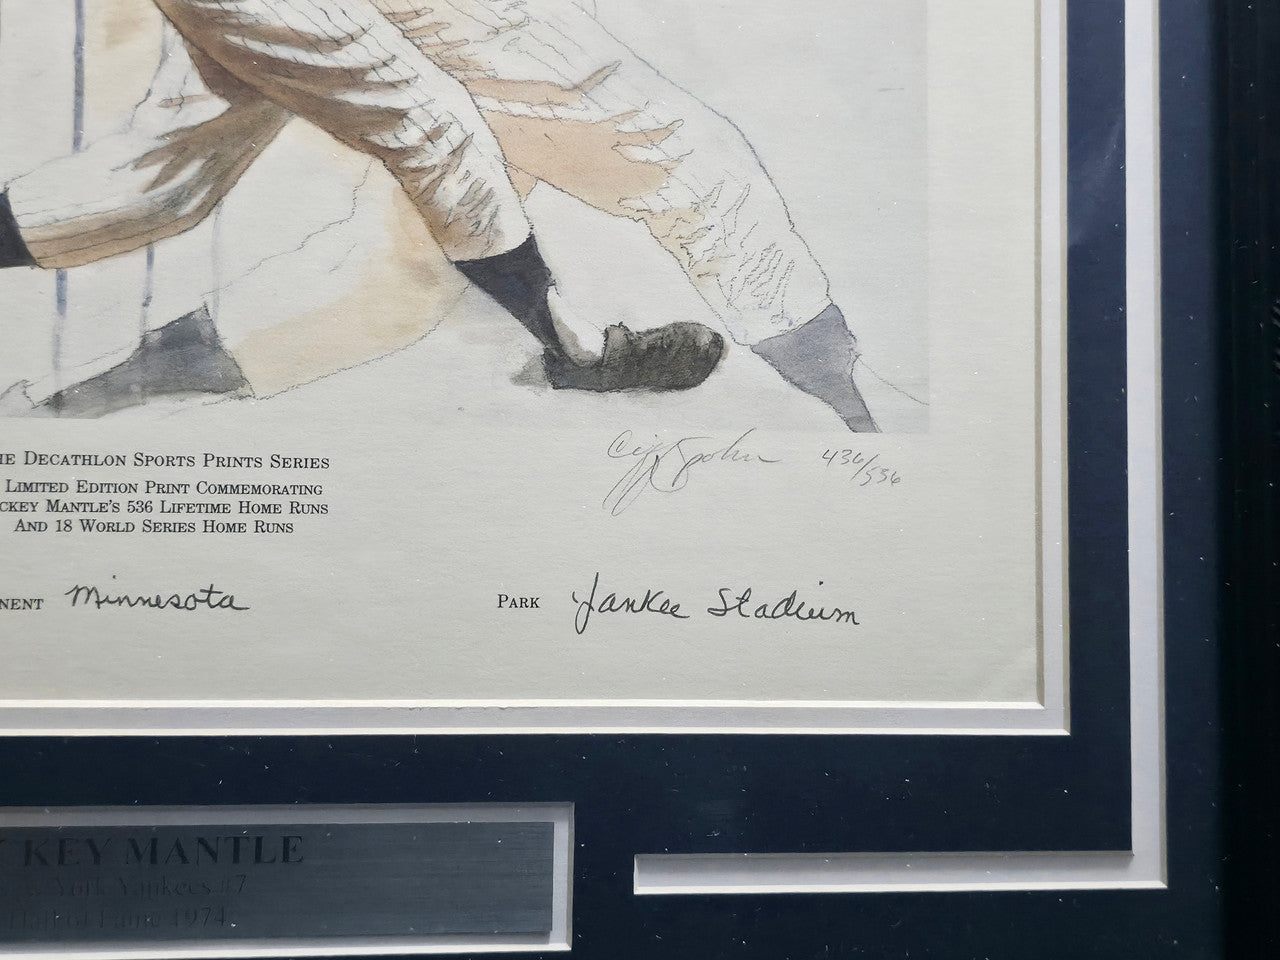 HE DECATHLON SPORTS PRINTS SERIES
LIMITED EDITION PRINT COMMEMORATING
CKEY MANTLE'S 536 LIFETIME HOME RUNS
AND 18 WORLD SERIES HOME RUNS
436/536
NENT Minnesota
PARK Yankee Stadium
KEY MANTLE
York Yankees #7
Hall of Fame 1974